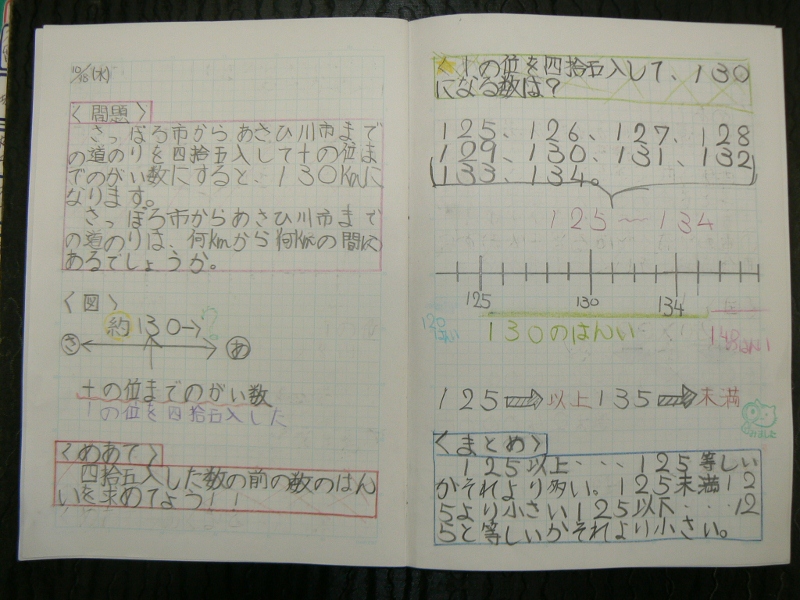 10/18(水)
〈問題〉
さっぽろ市からあさひ川市まで
の道のりを四拾五入して十の位ま
でのがい数にすると、130kmに
なります。
さっぽろ市からあさひ川市まで
の道のりは、何kmから何kmの間に
あるでしょうか。
〈図〉
約130→?
さ あ
十の位までのがい数
1の位を四拾五入した
〈めあて〉
四拾五入した数の前の数のはん
いを求めてよう!!
1の位を四拾五入して、130
になる数は?
125、126、127、128
129、130、131、132
133、134。
125〜134
125 130 134
120はんい
130のはんい
140はんい
125⇒以上135⇒未満
〈まとめ〉
125以上・・・125等しい
かそれより多い。125未満12
5より小さい125以下・・・12
5と等しいかそれより小さい。